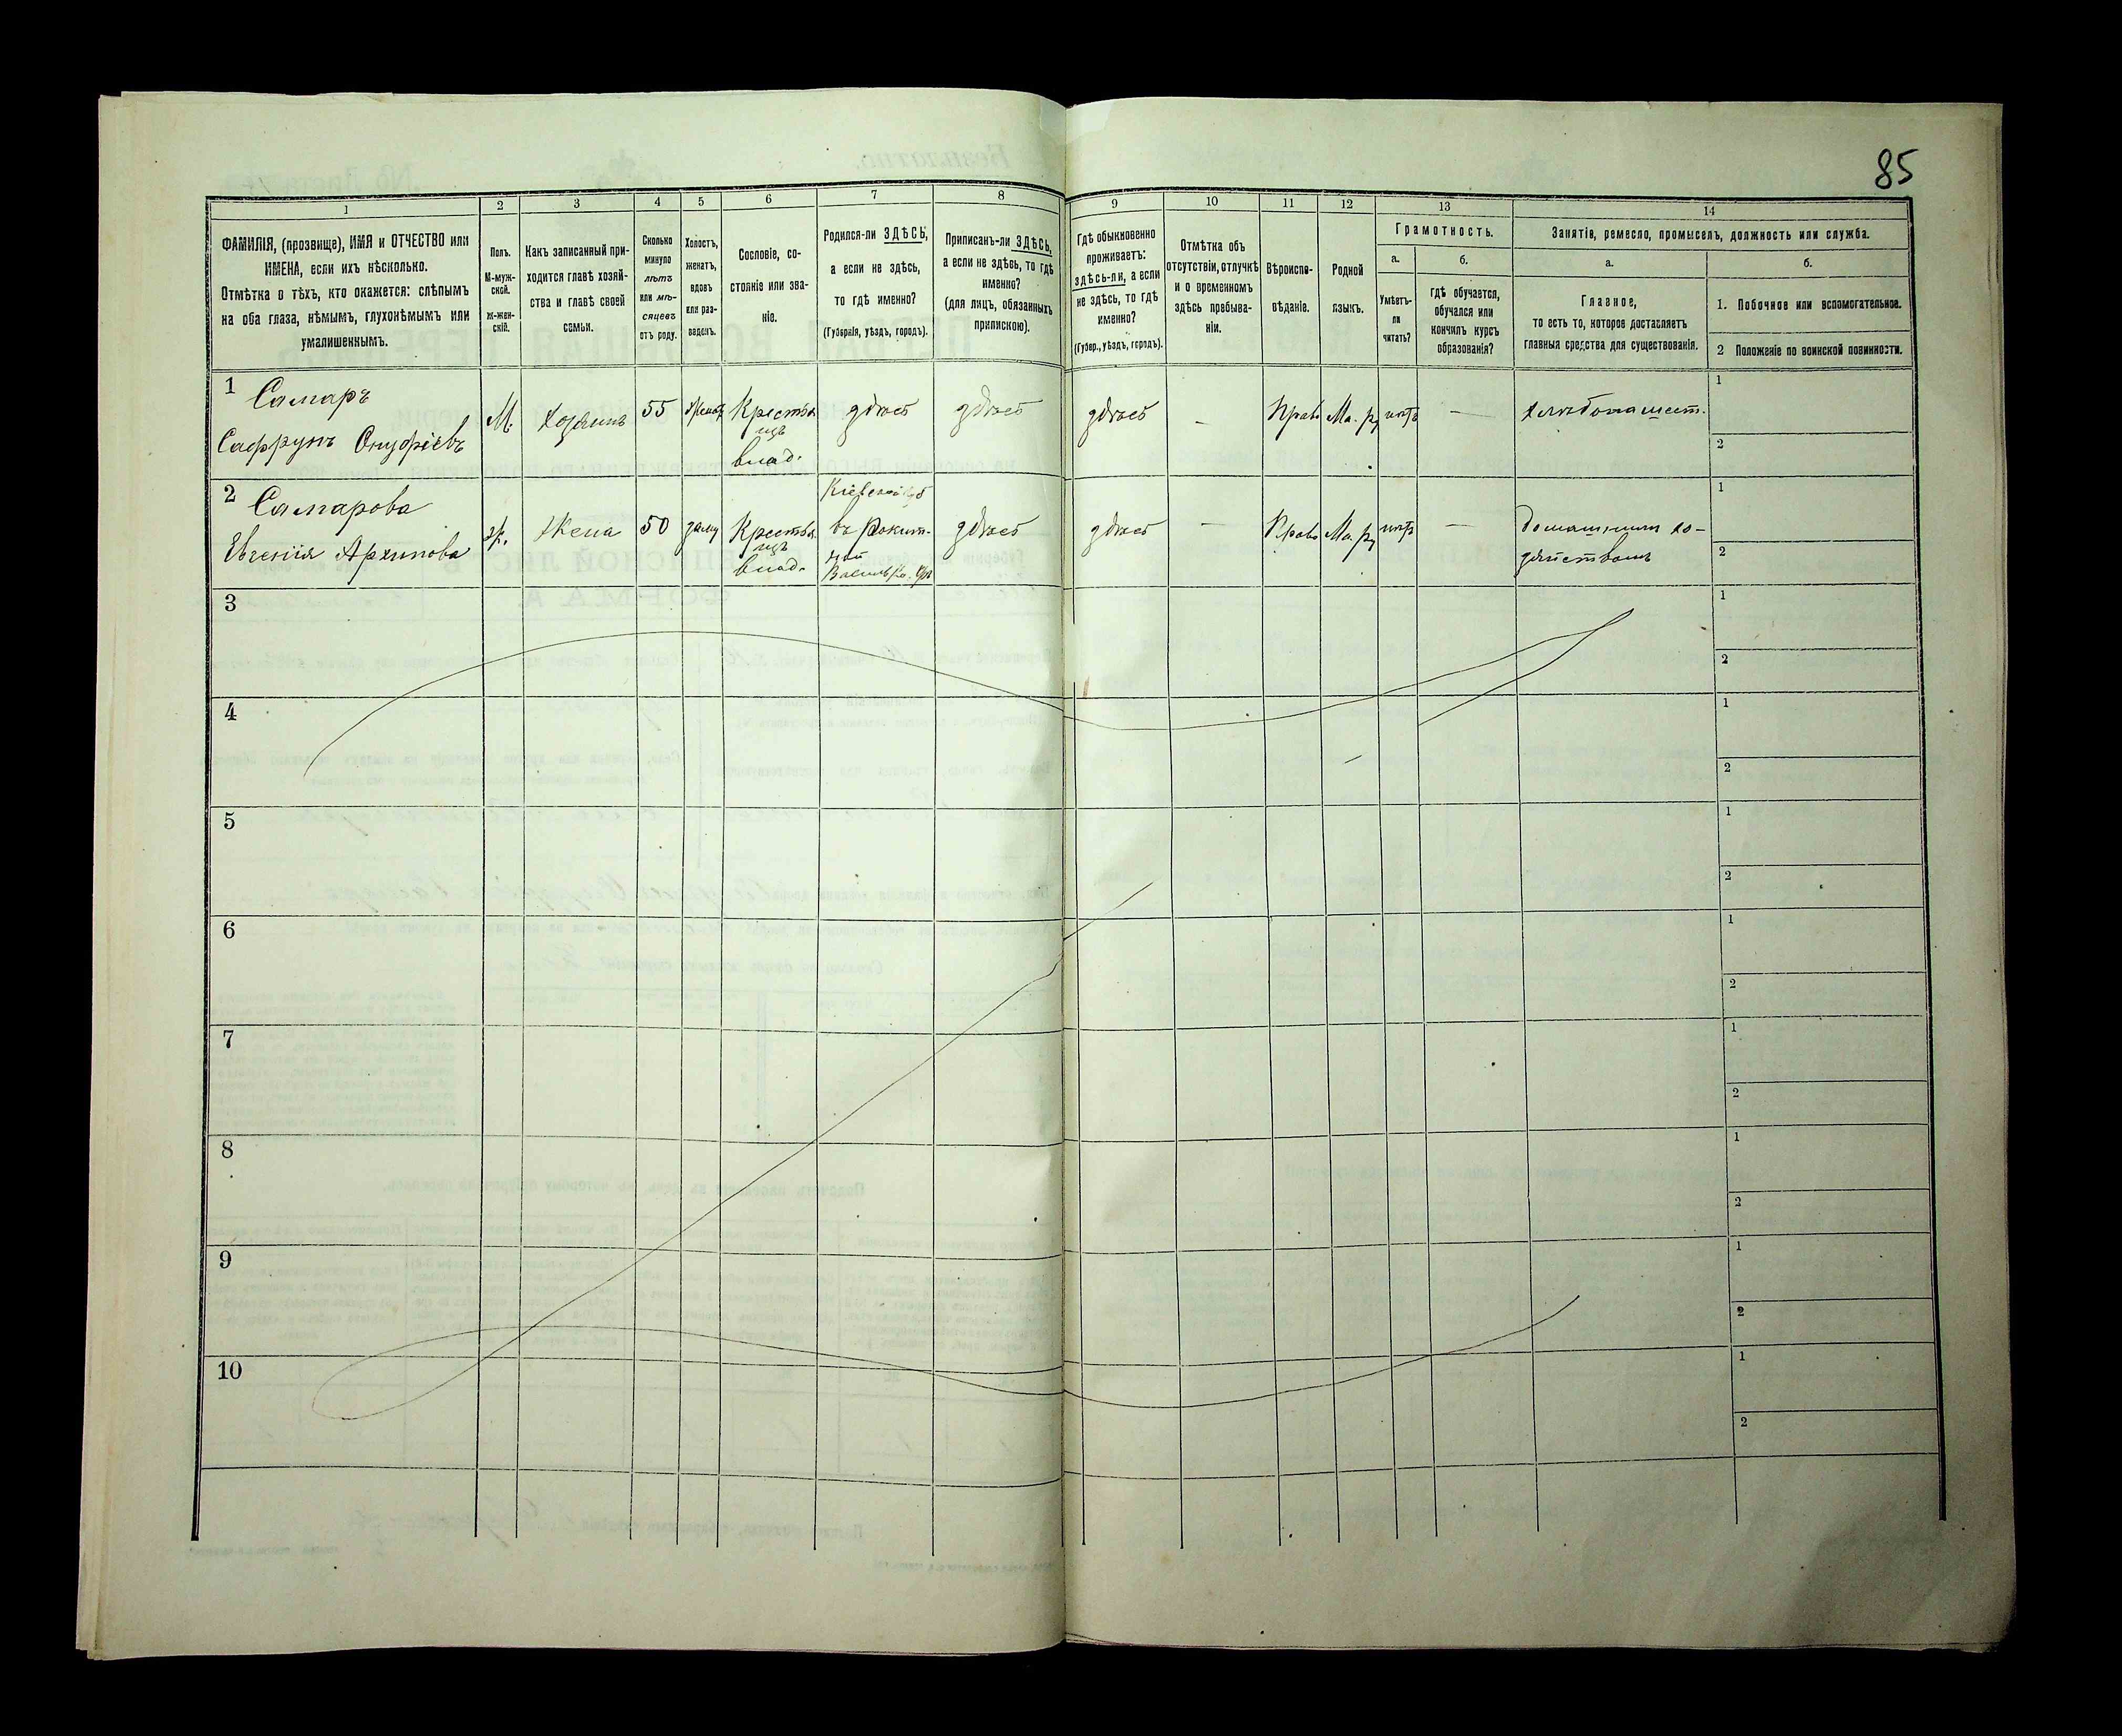 85
1
2
3
4
5
6
7
8
9
10
11
12
13
14
ФАМИЛІЯ, (прозвище), ИМЯ и ОТЧЕСТВО или
ИМЕНА, если ихъ нѣсколько.
Отмѣтка о тѣхъ, кто окажется: слѣпымъ
на оба глаза, нѣмымъ, глухонѣмымъ или
умалишеннымъ.
Полъ.
М-муж-
ской.
Ж-жен-
скій.
Какъ записанный при-
ходится главѣ хозяй-
ства и главѣ своей
семьи.
Сколько
минуло
лѣтъ
или мѣ-
сяцевъ
отъ роду.
Холостъ,
женатъ,
вдовъ
или раз-
веденъ.
Сословіе, со-
стояніе или зва-
ніе.
Родился-ли ЗДѢСЬ,
а если не здѣсь,
то гдѣ именно?
(Губернія, уѣздъ, городъ).
Приписанъ-ли ЗДѢСЬ,
а если не здѣсь, то гдѣ
именно?
(для лицъ, обязанныхъ
припискою).
Гдѣ обыкновенно
проживаетъ:
здѣсь-ли, а если
не здѣсь, то гдѣ
именно?
(Губер., уѣздъ, городъ).
Отмѣтка объ
отсутствіи, отлучкѣ
и о временномъ
здѣсь пребыва-
ніи.
Вѣроиспо-
вѣданіе.
Родной
языкъ.
Грамотность.
а.
б.
Умѣетъ-
ли
читать?
гдѣ обучается,
обучался или
кончилъ курсъ
образованія?
Занятія, ремесло, промыселъ, должность или служба.
а.
б.
Главное,
то есть то, которое доставляетъ
главныя средства для существованія.
1. Побочное или вспомогательное.
2 Положеніе по воинской повинности.
1
Самаръ
Сафрунъ Онуфріевъ
М.
Хозяинъ
55
женатъ
Крестья
нцъ
влад.
здѣсь
здѣсь
здѣсь
—
Право
Ма. ру
нѣтъ
—
хлѣбопашест.
1
2
2
Самарова
Евгенія Архипова
ж.
Жена
50
Крестья
нцъ
влад.
Кіевской Губ
въ Рокит-
ной
здѣсь
здѣсь
—
Право
Ма. ру
нѣтъ
—
домашнимъ хо-
зяйствомъ
1
2
3
1
2
4
1
2
5
1
2
6
1
2
7
1
2
8
1
2
9
1
2
10
1
2